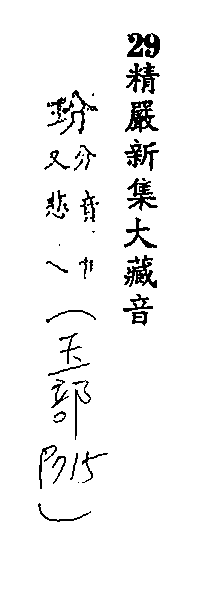 29精嚴新集大藏音
玢
分音巾
又悲乀
(玉部
P15)